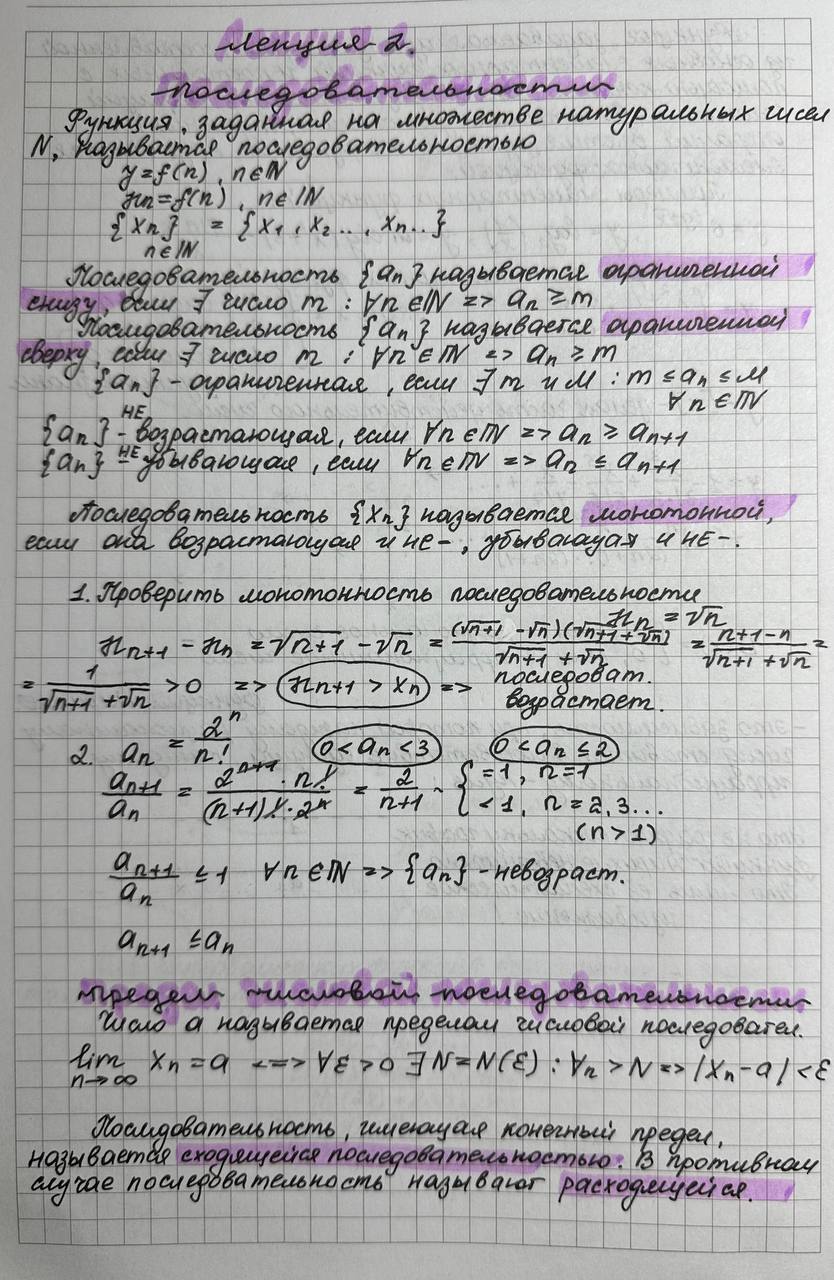 Лекция 2.
Последовательности
Функция, заданная на множестве натуральных чисел
N, называется последовательностью
y=f(n), n∈ℕ
xn=f(n), n∈ℕ
{xn} = {x1, x2.., xn..}
n∈ℕ
Последовательность {an} называется ограниченной
снизу, если ∃ число m : ∀n∈ℕ => an ≥ m
Последовательность {an} называется ограниченной
сверху, если ∃ число m : ∀n∈ℕ => an ≥ m
{an} - ограниченная, если ∃ m и M : m ≤ an ≤ M
∀n∈ℕ
{an} - НЕ возрастающая, если ∀n∈ℕ => an ≥ an+1
{an} - НЕ убывающая, если ∀n∈ℕ => an ≤ an+1
Последовательность {xn} называется монотонной,
если она возрастающая и не-, убывающая и не-.
1. Проверить монотонность последовательности
xn = √n
xn+1 - xn = √(n+1) - √n = (√(n+1) - √n)(√(n+1) + √n) / (√(n+1) + √n) = (n+1-n) / (√(n+1) + √n) =
= 1 / (√(n+1) + √n) > 0 => (xn+1 > xn) => последоват. возрастает.
2. an = 2^n / n! (0 < an < 3) (0 < an ≤ 2)
an+1 / an = 2^(n+1) · n! / ((n+1)! · 2^n) = 2 / (n+1) - { = 1, n=1
< 1, n = 2,3...
(n>1)
an+1 / an ≤ 1 ∀n∈ℕ => {an} - невозраст.
an+1 ≤ an
Предел числовой последовательности
Число a называется пределом числовой последовател.
lim n→∞ xn = a <=> ∀ε > 0 ∃N=N(ε) : ∀n > N => |xn-a| < ε
Последовательность, имеющая конечный предел,
называется сходящейся последовательностью. В противном
случае последовательность называют расходящейся.